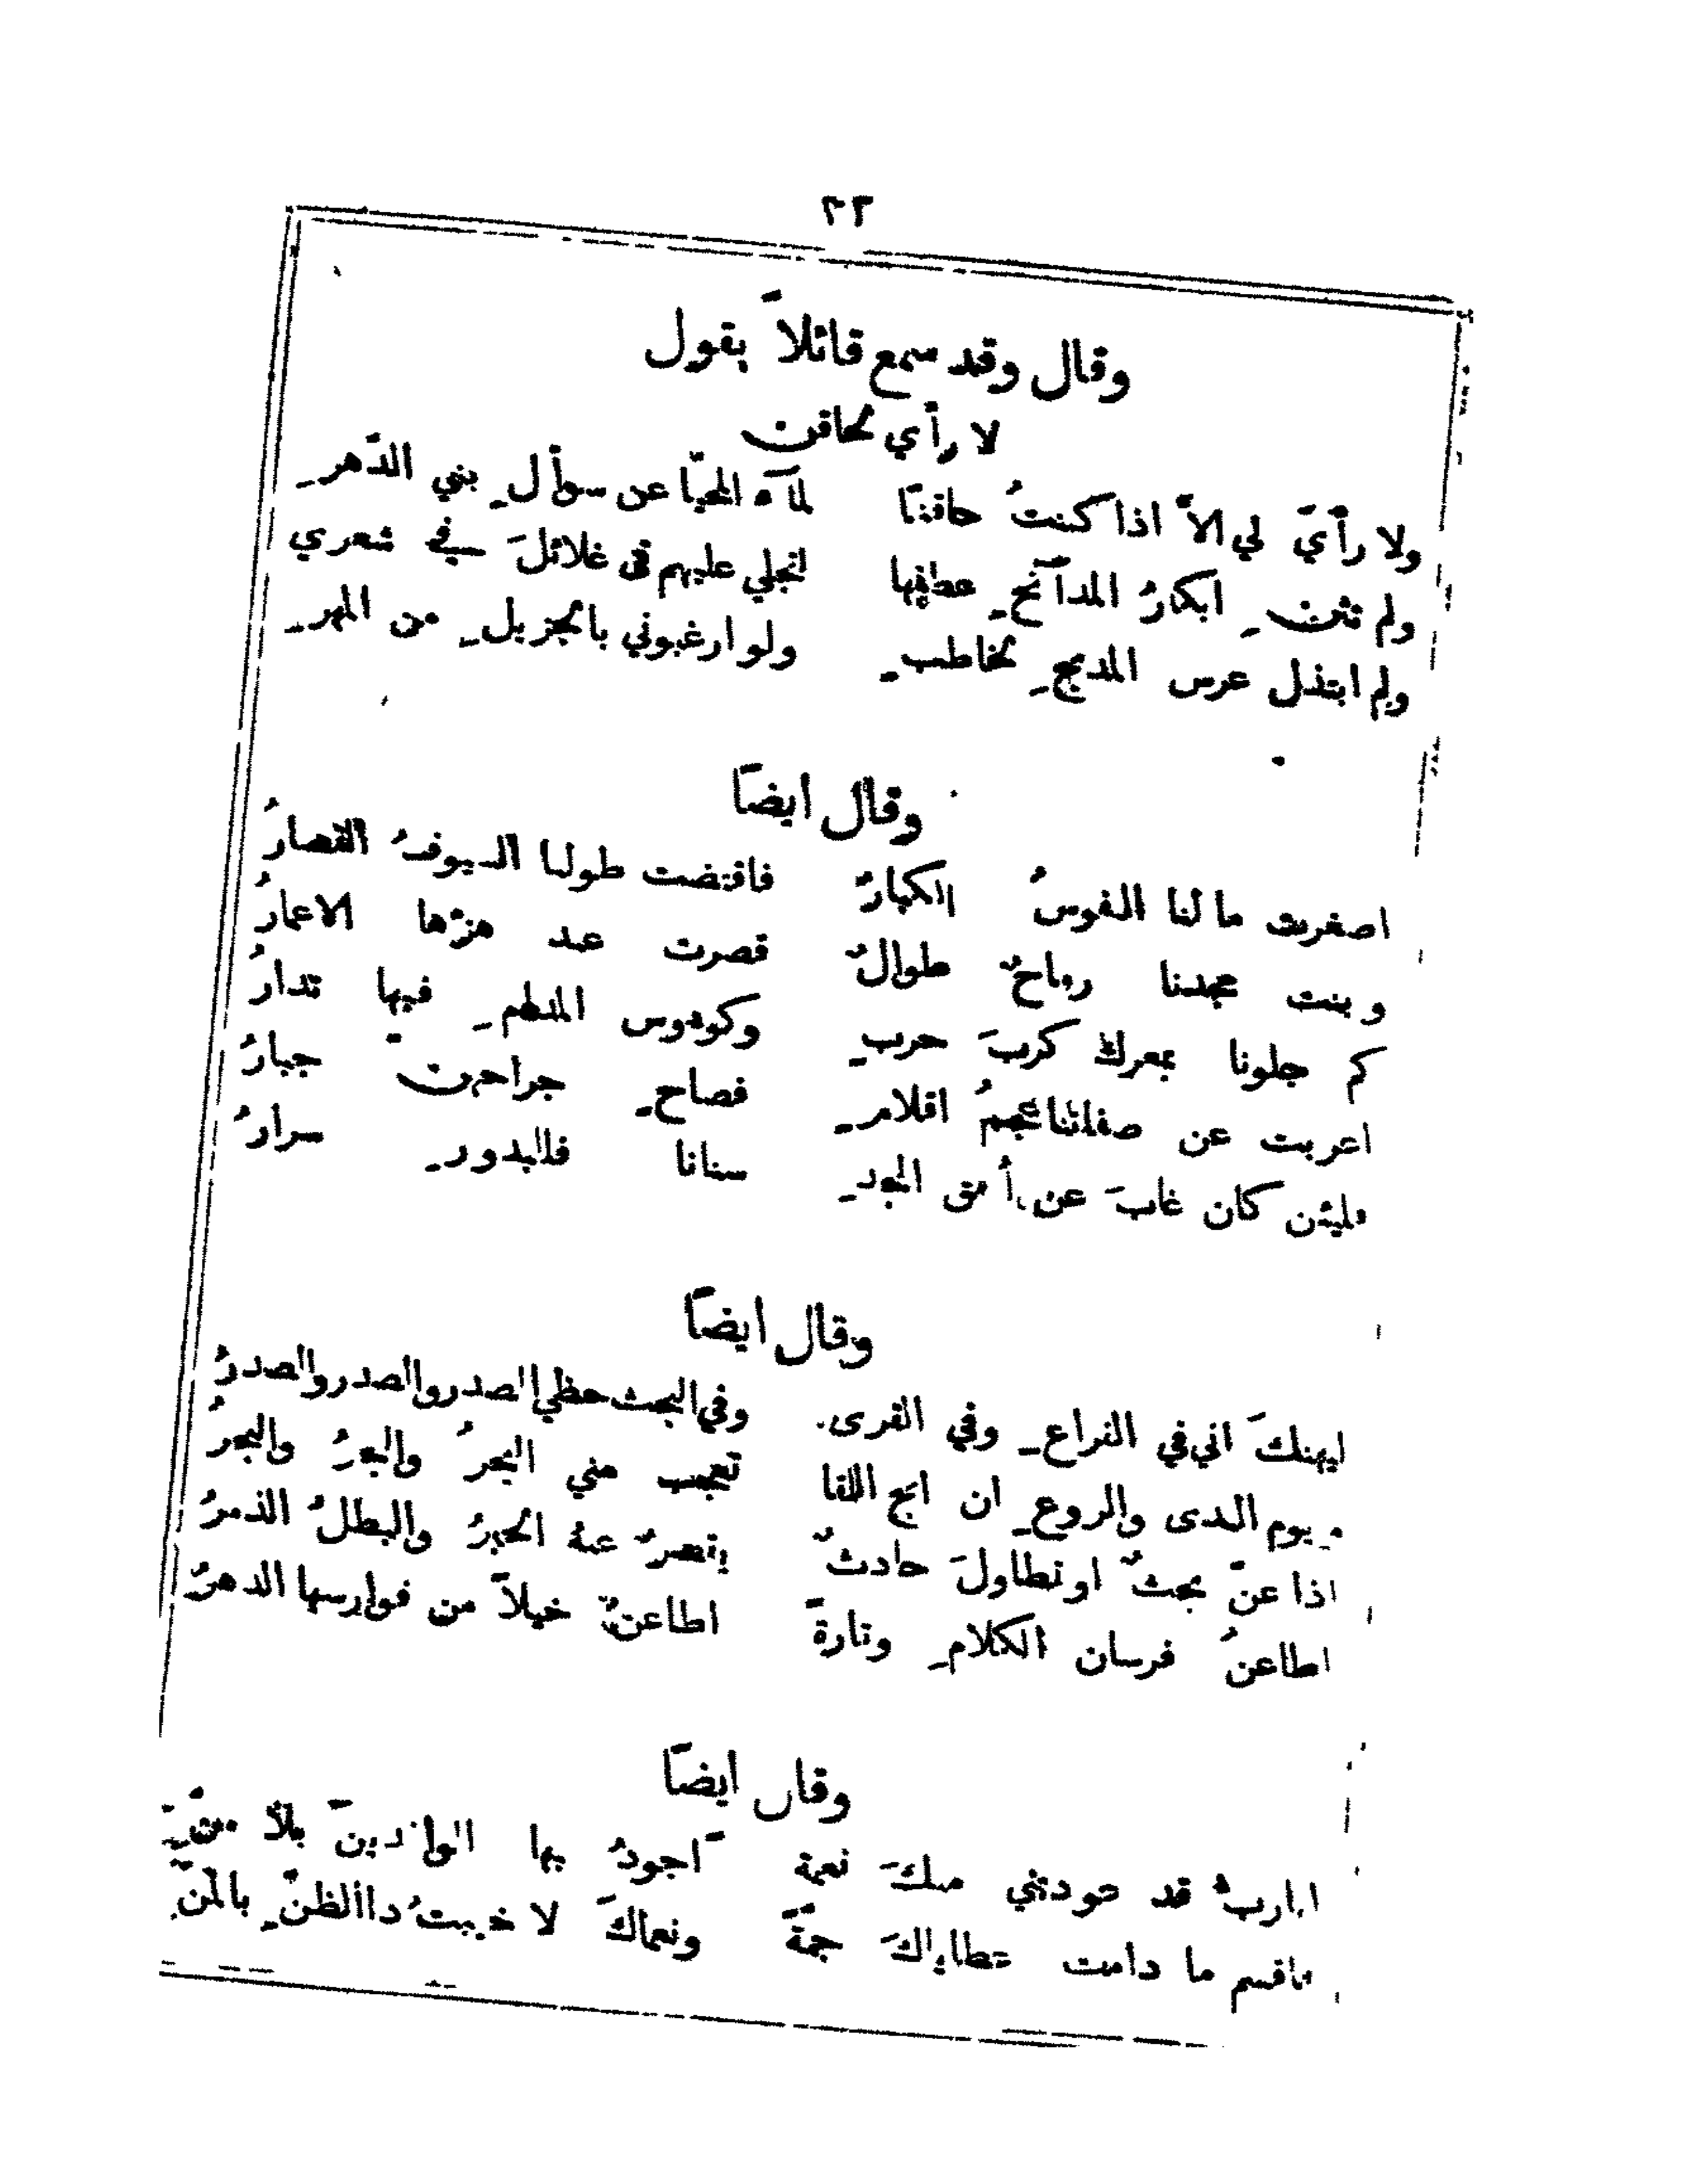 ٢٣
وقال وقد سمع قائلاً يقول
لا رأي لحاقن
ولا رأيَ لي الاَّ اذا كنتُ حاقنًا لمآء المحيَّا عن سؤالِ بني الدَّهرِ
ولم تثنِ ابكارُ المدآئحِ عطفها لتجلي عليهم في غلائلَ من شعري
ولم ابتذل عرس المديحِ لخاطبِ ولو ارغبوني بالجزيلِ من المهرِ
وقال ايضًا
اصغرت ما لنا النفوسُ الكبارُ فاقتضت طولنا السيوفُ القصارُ
وبنت مجدنا رماحٌ طوالٌ قصرت عند هزّها الاعمارُ
كم جلونا بمعركٍ كربَ حربِ وكؤوس المنطمِ فيها تدارُ
اعربت عن صفاتنا عجمُ اقلامِ فصاحِ جراحهنَّ جبارُ
فلئن كان غابَ عن أفق المجدِ سنانا فللبدورِ سرارُ
وقال ايضًا
ليهنكَ اني في القراعِ وفي القرى وفي البحث حظي الصدر والصدر والصدرُ
ويوم الندى والروعِ ان ابح اللقا تعجب مني البحرُ والبحرُ والبحرُ
اذا عنَّ بحثٌ او تطاولَ حادثٌ يقصرُ عنهُ الحبرُ والبطلُ الذمرُ
اطاعنُ فرسان الكلامِ وتارةً اطاعنُ خيلاً من فوارسها الدهرُ
وقال ايضًا
ايا ربِّ قد عودتني منكَ نعمة اجودُ بها للوافدينَ بلا منِّ
فاقسم ما دامت عطاياكَ جمةً ونعماكَ لا خيبتُ ذا الظنِّ بالمنِّ